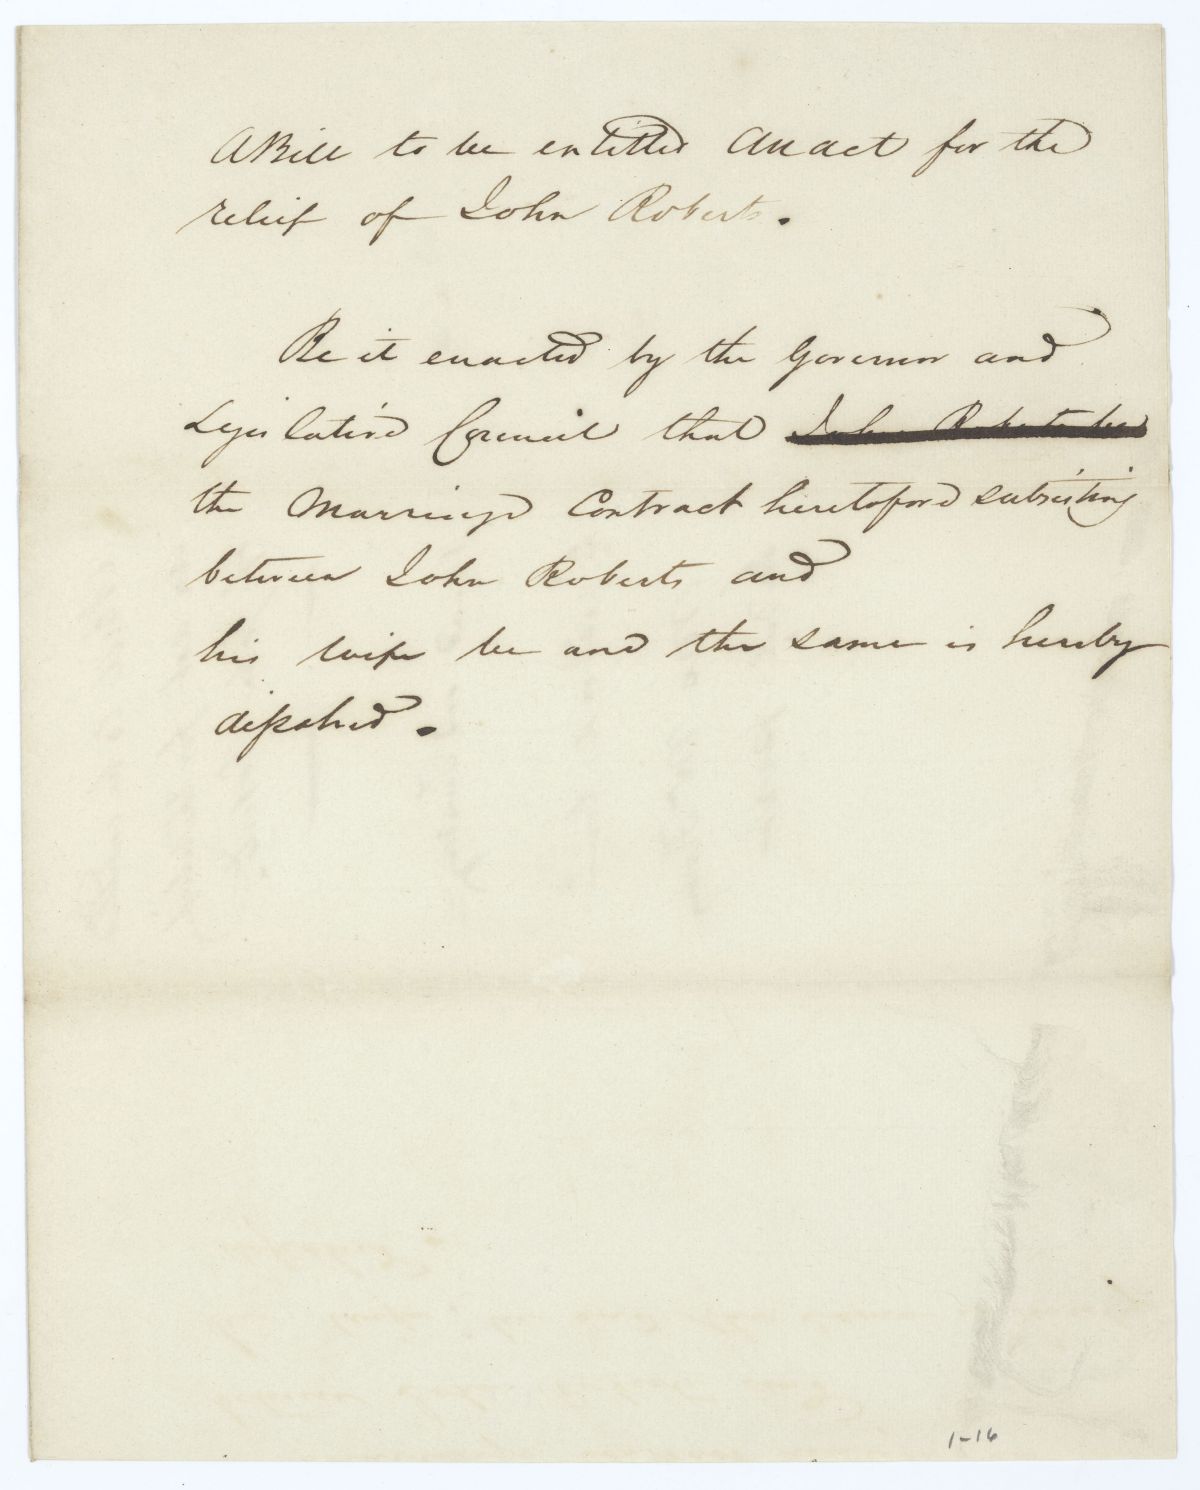 A Bill to be entitled An act for the
relief of John Roberts.
Be it enacted by the Governor and
Legislative Council that John Roberts be
the Marriage Contract heretofore subsisting
between John Roberts and
his wife be and the same is hereby
dissolved.
1-16